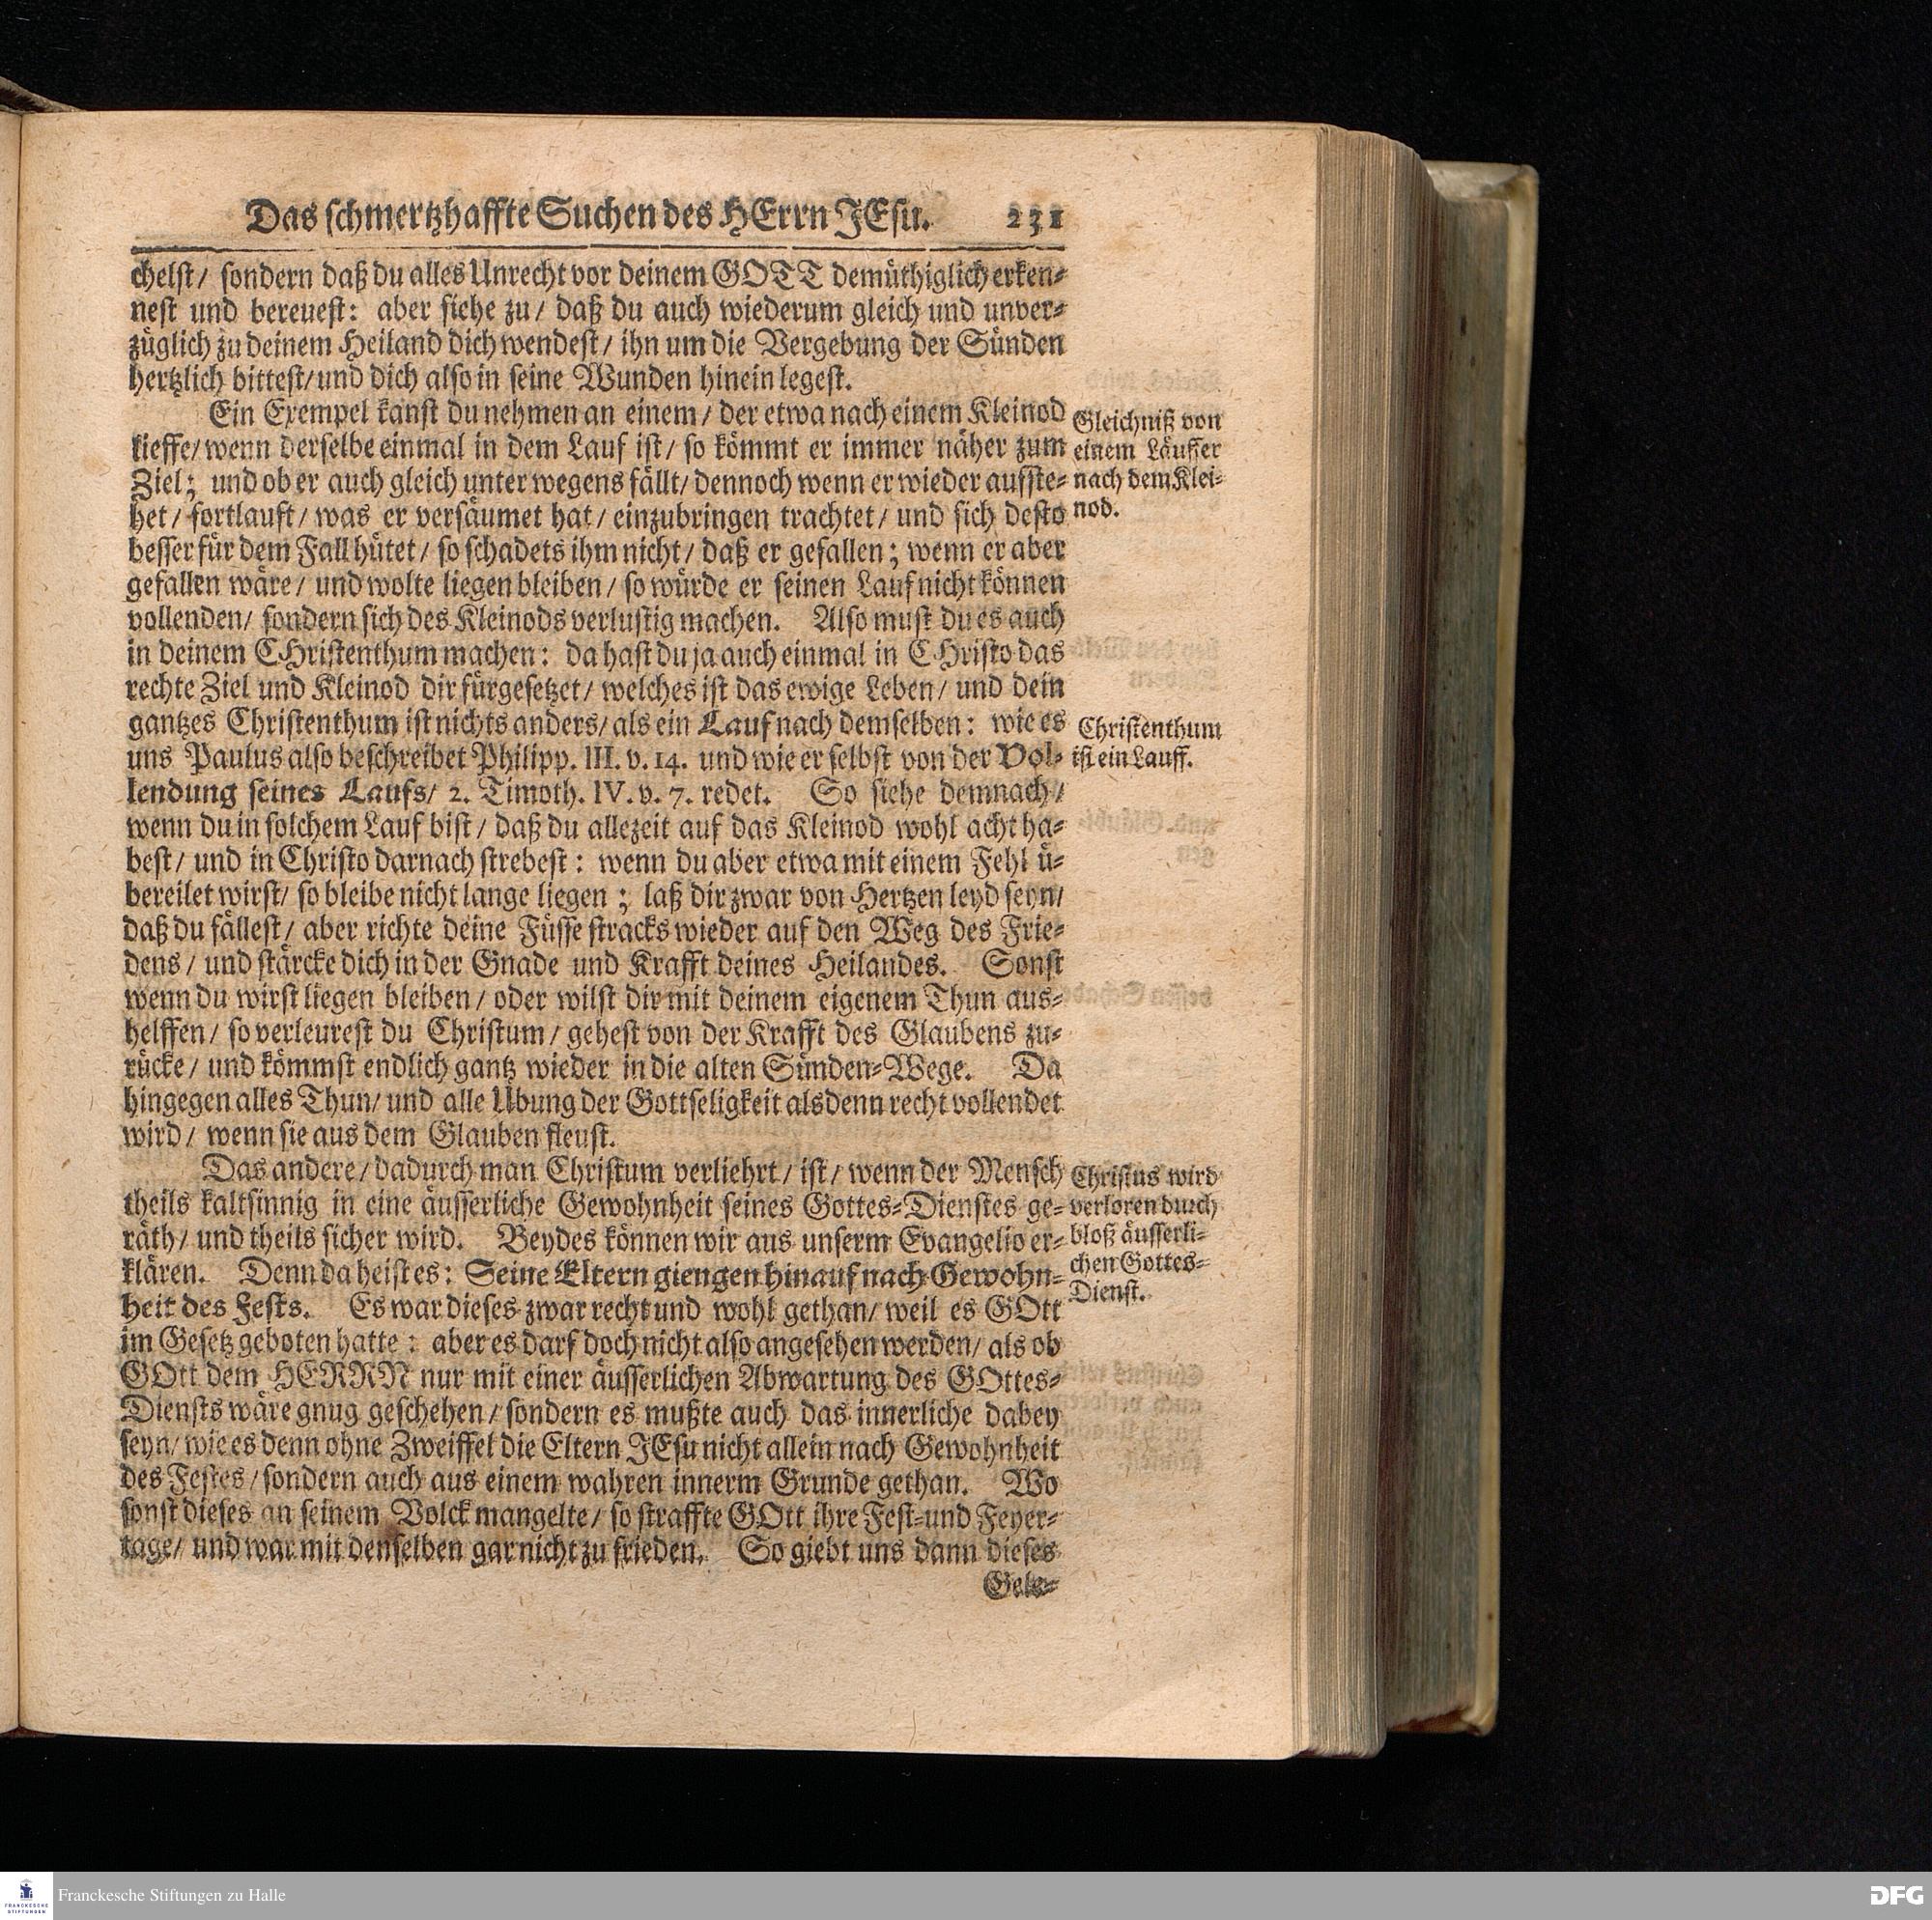 Das ſchmertzhaffte Suchen des HErrn JEſu. 231
chelſt/ ſondern daß du alles Unrecht vor deinem GOTT demüthiglich erken-
neſt und bereueſt: aber ſiehe zu/ daß du auch wiederum gleich und unver-
züglich zu deinem Heiland dich wendeſt/ ihn um die Vergebung der Sünden
hertzlich bitteſt/ und dich alſo in ſeine Wunden hinein legeſt.
Ein Exempel kanſt du nehmen an einem/ der etwa nach einem Kleinod
lieffe/ wenn derſelbe einmal in dem Lauf iſt/ ſo kömmt er immer näher zum
Ziel; und ob er auch gleich unter wegens fällt/ dennoch wenn er wieder aufſte-
het/ fortlauft/ was er verſäumet hat/ einzubringen trachtet/ und ſich deſto
beſſer für dem Fall hütet/ ſo ſchadets ihm nicht/ daß er gefallen; wenn er aber
gefallen wäre/ und wolte liegen bleiben/ ſo würde er ſeinen Lauf nicht können
vollenden/ ſondern ſich des Kleinods verluſtig machen. Alſo muſt du es auch
in deinem CHriſtenthum machen: da haſt du ja auch einmal in CHriſto das
rechte Ziel und Kleinod dir fürgeſetzet/ welches iſt das ewige Leben/ und dein
gantzes Chriſtenthum iſt nichts anders/ als ein Lauf nach demſelben: wie es
uns Paulus alſo beſchreibet Philipp. III. v. 14. und wie er ſelbſt von der Vol-
lendung ſeines Laufs/ 2. Timoth. IV. v. 7. redet. So ſiehe demnach/
wenn du in ſolchem Lauf biſt/ daß du allezeit auf das Kleinod wohl acht ha-
beſt/ und in Chriſto darnach ſtrebeſt: wenn du aber etwa mit einem Fehl ü-
bereilet wirſt/ ſo bleibe nicht lange liegen; laß dir zwar von Hertzen leyd ſeyn/
daß du fälleſt/ aber richte deine Füſſe ſtracks wieder auf den Weg des Frie-
dens/ und ſtärcke dich in der Gnade und Krafft deines Heilandes. Sonſt
wenn du wirſt liegen bleiben/ oder wilſt dir mit deinem eigenem Thun aus-
helffen/ ſo verleureſt du Chriſtum/ geheſt von der Krafft des Glaubens zu-
rücke/ und kömmſt endlich gantz wieder in die alten Sünden-Wege. Da
hingegen alles Thun/ und alle Übung der Gottſeligkeit alsdenn recht vollendet
wird/ wenn ſie aus dem Glauben fleuſt.
Das andere/ dadurch man Chriſtum verliehrt/ iſt/ wenn der Menſch
theils kaltſinnig in eine äuſſerliche Gewohnheit ſeines Gottes-Dienſtes ge-
räth/ und theils ſicher wird. Beydes können wir aus unſerm Evangelio er-
klären. Denn da heiſt es: Seine Eltern giengen hinauf nach Gewohn-
heit des Feſts. Es war dieſes zwar recht und wohl gethan/ weil es GOtt
im Geſetz geboten hatte: aber es darf doch nicht alſo angeſehen werden/ als ob
GOtt dem HERRN nur mit einer äuſſerlichen Abwartung des GOttes-
Dienſts wäre gnug geſchehen/ ſondern es mußte auch das innerliche dabey
ſeyn/ wie es denn ohne Zweiffel die Eltern JEſu nicht allein nach Gewohnheit
des Feſtes/ ſondern auch aus einem wahren innerm Grunde gethan. Wo
ſonſt dieſes an ſeinem Volck mangelte/ ſo ſtraffte GOtt ihre Feſt-und Feyer-
tage/ und war mit denſelben gar nicht zu frieden. So giebt uns dann dieſes
Gele-
Gleichniß von
einem Läuffer
nach dem Klei-
nod.
Chriſtenthum
iſt ein Lauff.
Chriſtus wird
verloren durch
bloß äuſſerli-
chen Gottes-
Dienſt.
FRANCKESCHE
STIFTUNGEN
Franckesche Stiftungen zu Halle
DFG